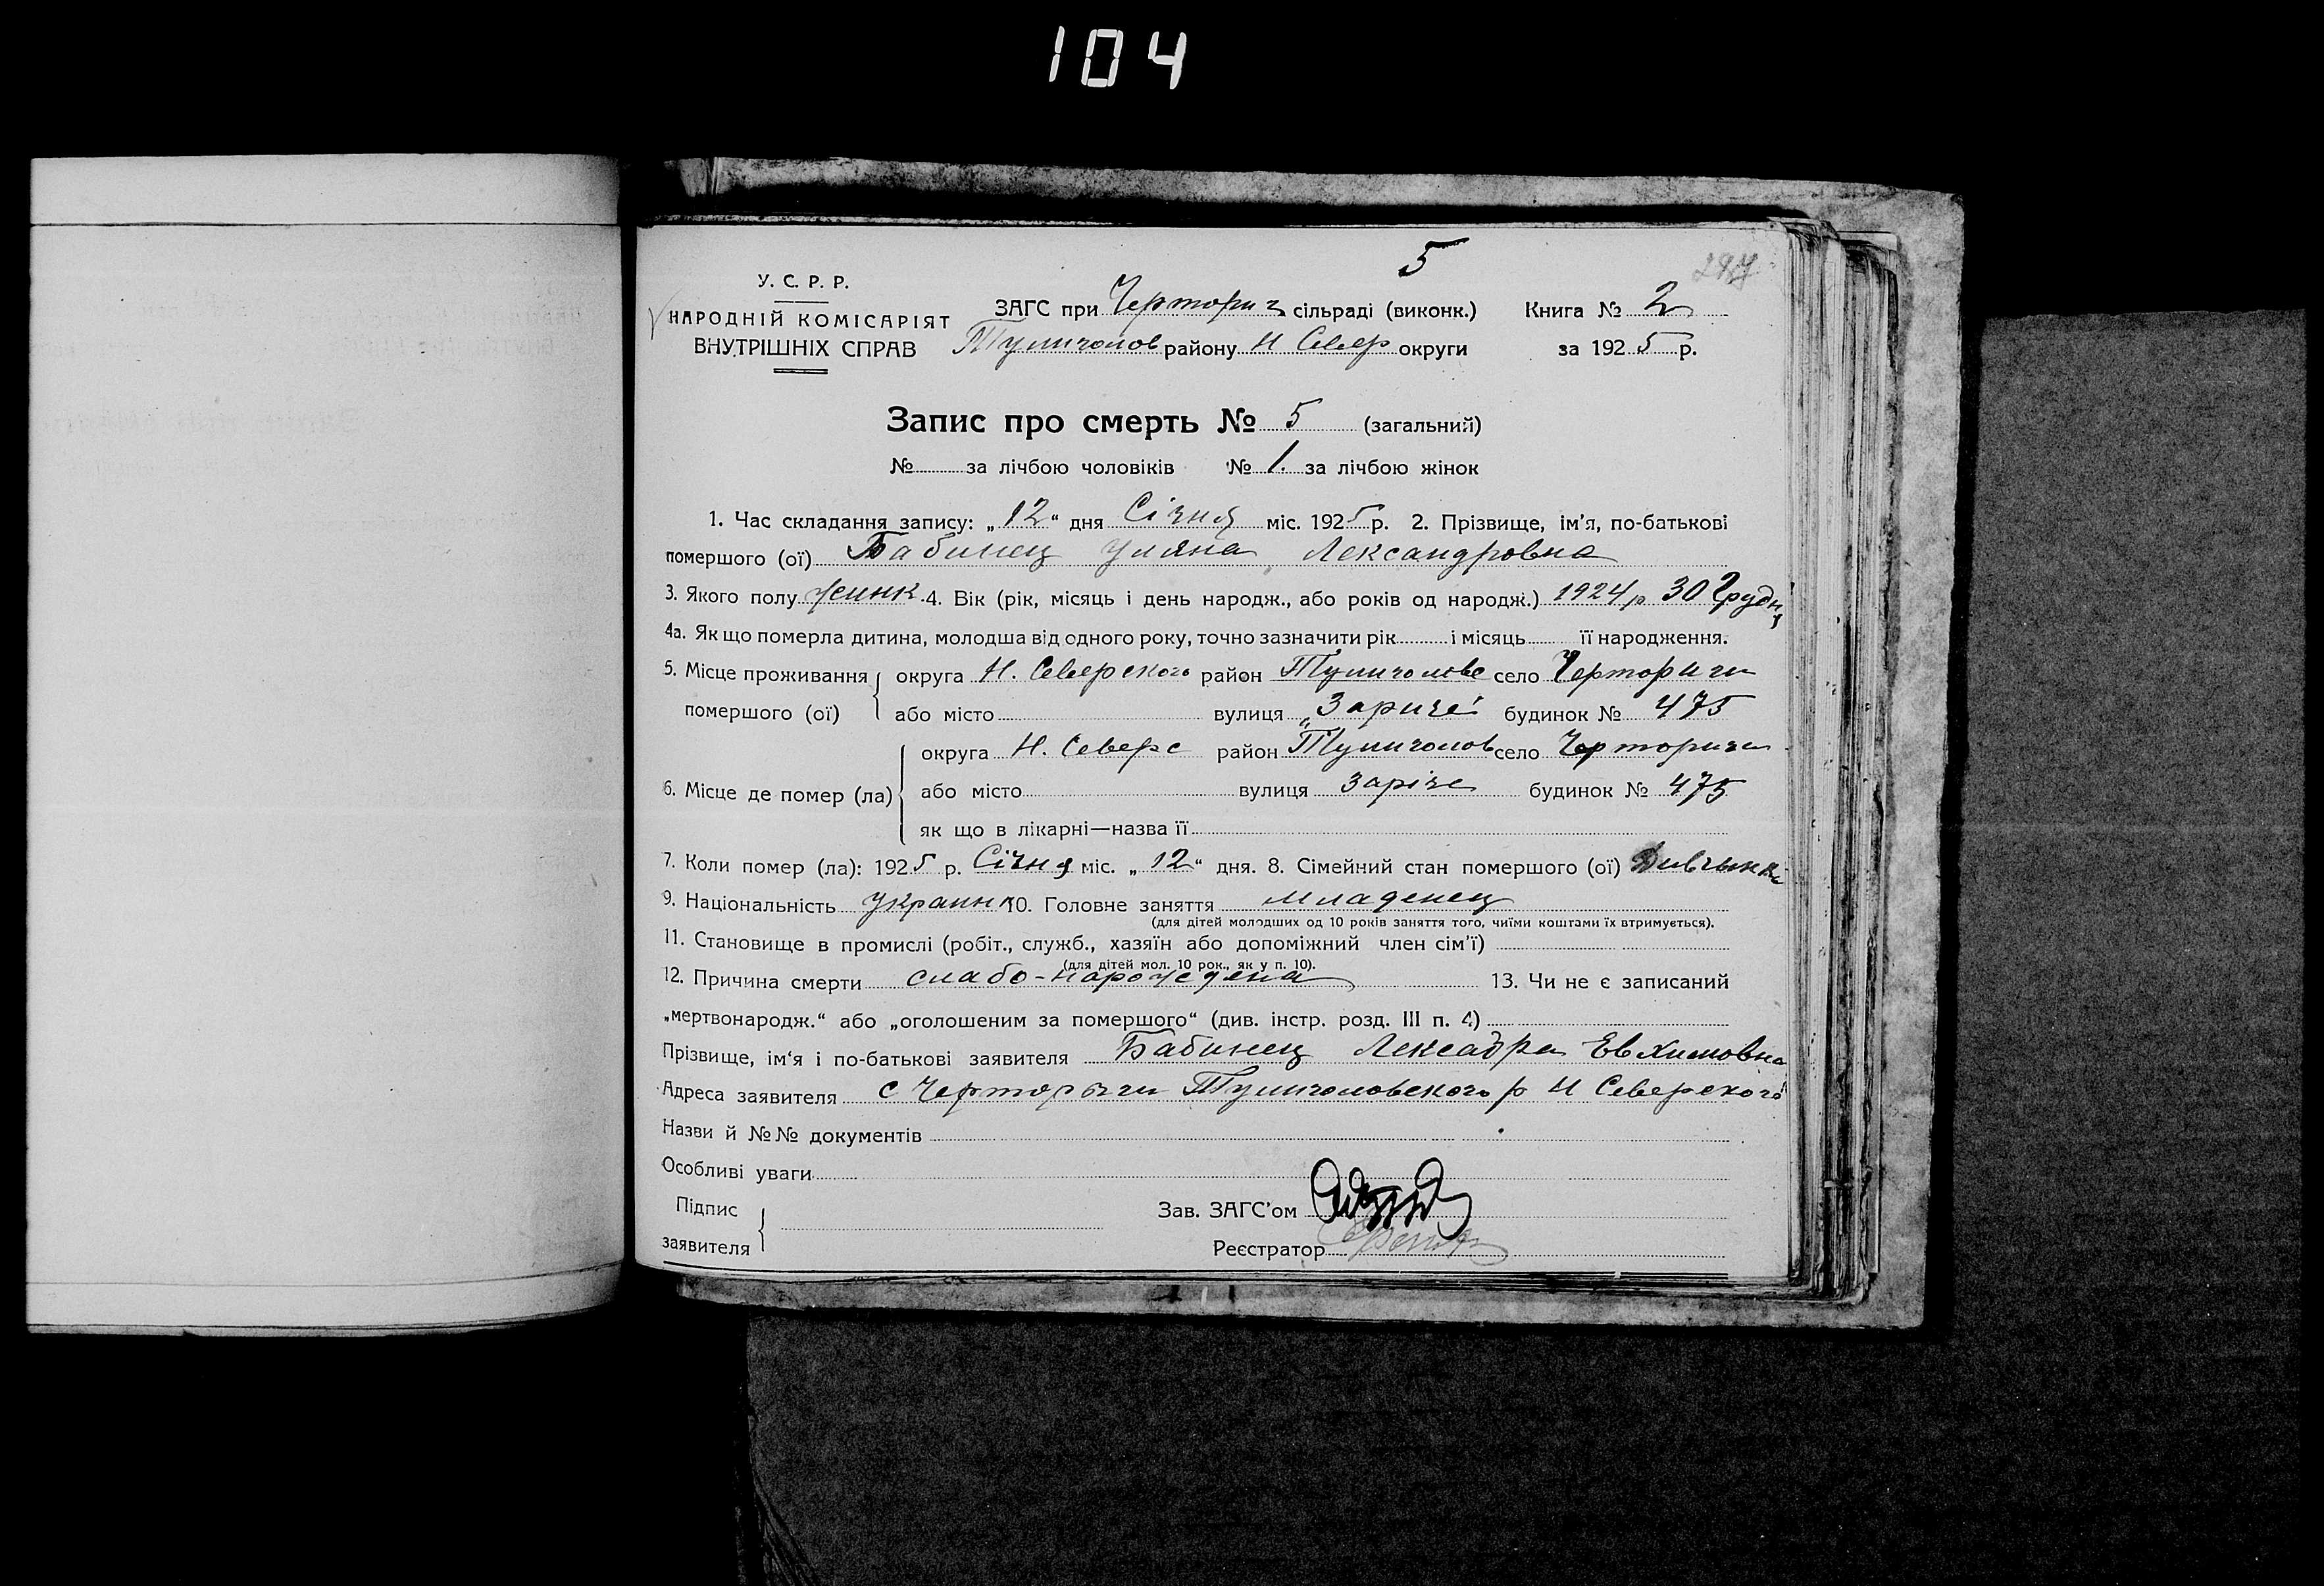 104
5
297
У. С. Р. Р.
НАРОДНІЙ КОМІСАРІЯТ
ВНУТРІШНІХ СПРАВ
ЗАГС при Черториг сільраді (виконк.) Книга № 2
Тулиголов району Н Север округи за 1925 р.
Запис про смерть № 5 (загальний)
№ за лічбою чоловіків № 1. за лічбою жінок
1. Час складання запису: „12“ дня Січня міс. 1925 р. 2. Прізвище, ім'я, по-батькові
помершого (ої) Бабинец Уляна Лександровна
3. Якого полу жинк. 4. Вік (рік, місяць і день народж., або років од народж.) 1924 р 30 Грудня
4а. Як що померла дитина, молодша від одного року, точно зазначити рік і місяць її народження.
5. Місце проживання округа Н. Северского район Тулиголове село Черториги
помершого (ої) або місто вулиця „Заричеі будинок № 475
округа Н. Северс район Тулиголов село Черториги
6. Місце де помер (ла) або місто вулиця Заріче будинок № 475
як що в лікарні—назва її
7. Коли помер (ла): 1925 р. Січня міс. „12“ дня. 8. Сімейний стан помершого (ої) Дивчынка
9. Національність Украинк 10. Головне заняття младенец
(для дітей молодших од 10 років заняття того, чиїми коштами їх втримується).
11. Становище в промислі (робіт., служб., хазяїн або допоміжний член сім'ї)
(для дітей мол. 10 рок., як у п. 10).
12. Причина смерти слабо-нарождена 13. Чи не є записаний
„мертвонародж.“ або „оголошеним за помершого“ (див. інстр. розд. III п. 4)
Прізвище, ім'я і по-батькові заявителя Бабинец Лексадра Евхимовна
Адреса заявителя с Черторыги Тулиголовского р Н Северского
Назви й №№ документів
Особливі уваги
Підпис
заявителя
Зав. ЗАГС'ом
Реєстратор